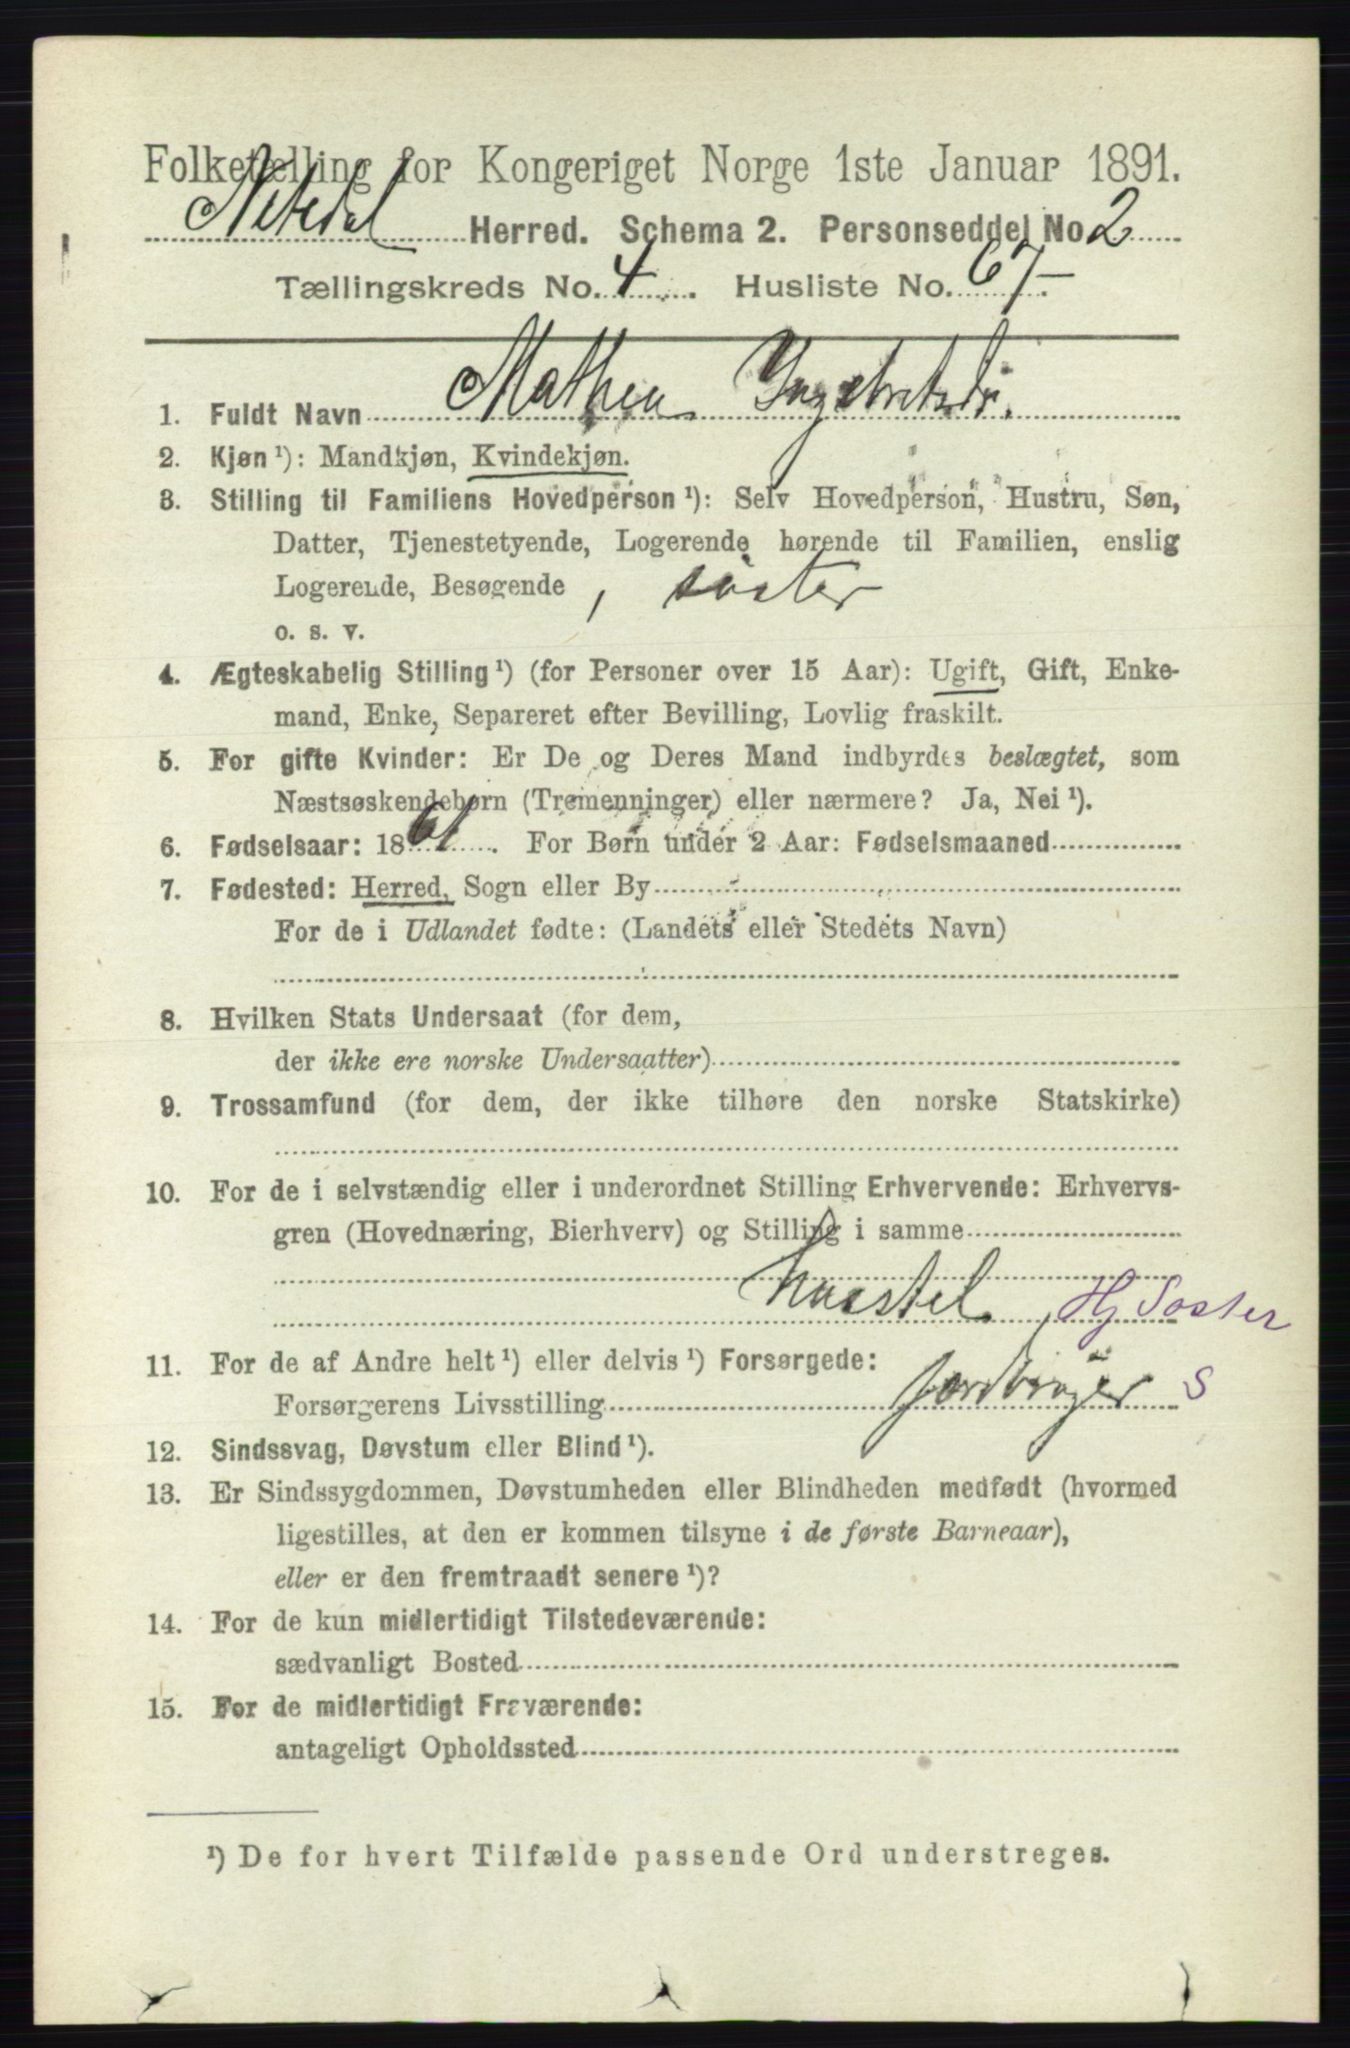 Folketælling for Kongeriget Norge 1ste Januar 1891.
Nitedal Herred. Schema 2. Personseddel No. 2
Tællingskreds No. 4. Husliste No. 67.
1. Fuldt Navn Mathea Ingebretsdr.
2. Kjøn ¹): Mandkjøn, Kvindekjøn.
3. Stilling til Familiens Hovedperson ¹): Selv Hovedperson, Hustru, Søn,
Datter, Tjenestetyende, Logerende hørende til Familien, enslig
Logerende, Besøgende , søster
o. s. v.
4. Ægteskabelig Stilling ¹) (for Personer over 15 Aar): Ugift, Gift, Enke-
mand, Enke, Separeret efter Bevilling, Lovlig fraskilt.
5. For gifte Kvinder: Er De og Deres Mand indbyrdes beslægtet, som
Næstsøskendebørn (Tremenninger) eller nærmere? Ja, Nei ¹).
6. Fødselsaar: 1861. For Børn under 2 Aar: Fødselsmaaned
7. Fødested: Herred, Sogn eller By
For de i Udlandet fødte: (Landets eller Stedets Navn)
8. Hvilken Stats Undersaat (for dem,
der ikke ere norske Undersaatter)
9. Trossamfund (for dem, der ikke tilhøre den norske Statskirke)
10. For de i selvstændig eller i underordnet Stilling Erhvervende: Erhvervs-
gren (Hovednæring, Bierhverv) og Stilling i samme
huusstel Hj Søster
11. For de af Andre helt ¹) eller delvis ¹) Forsørgede:
Forsørgerens Livsstilling jordbruger S
12. Sindssvag, Døvstum eller Blind ¹).
13. Er Sindssygdommen, Døvstumheden eller Blindheden medfødt (hvormed
ligestilles, at den er kommen tilsyne i de første Barneaar),
eller er den fremtraadt senere ¹)?
14. For de kun midlertidigt Tilstedeværende:
sædvanligt Bosted
15. For de midlertidigt Fraværende:
antageligt Opholdssted
¹) De for hvert Tilfælde passende Ord understreges.